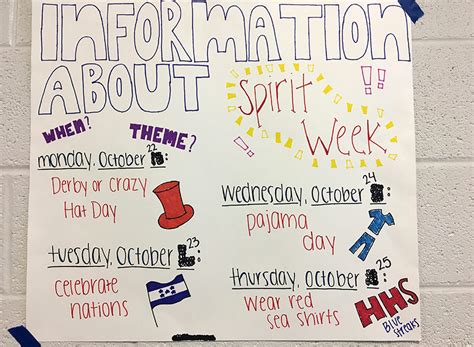 INFORMATION
ABOUT
Spirit
Week
WHEN? THEME?
monday, October 22:
Derby or Crazy
Hat Day
tuesday, October 23:
celebrate
nations
wednesday, October 24:
pajama
day
thursday, October 25:
wear red
sea shirts
HHS
Blue
Streaks